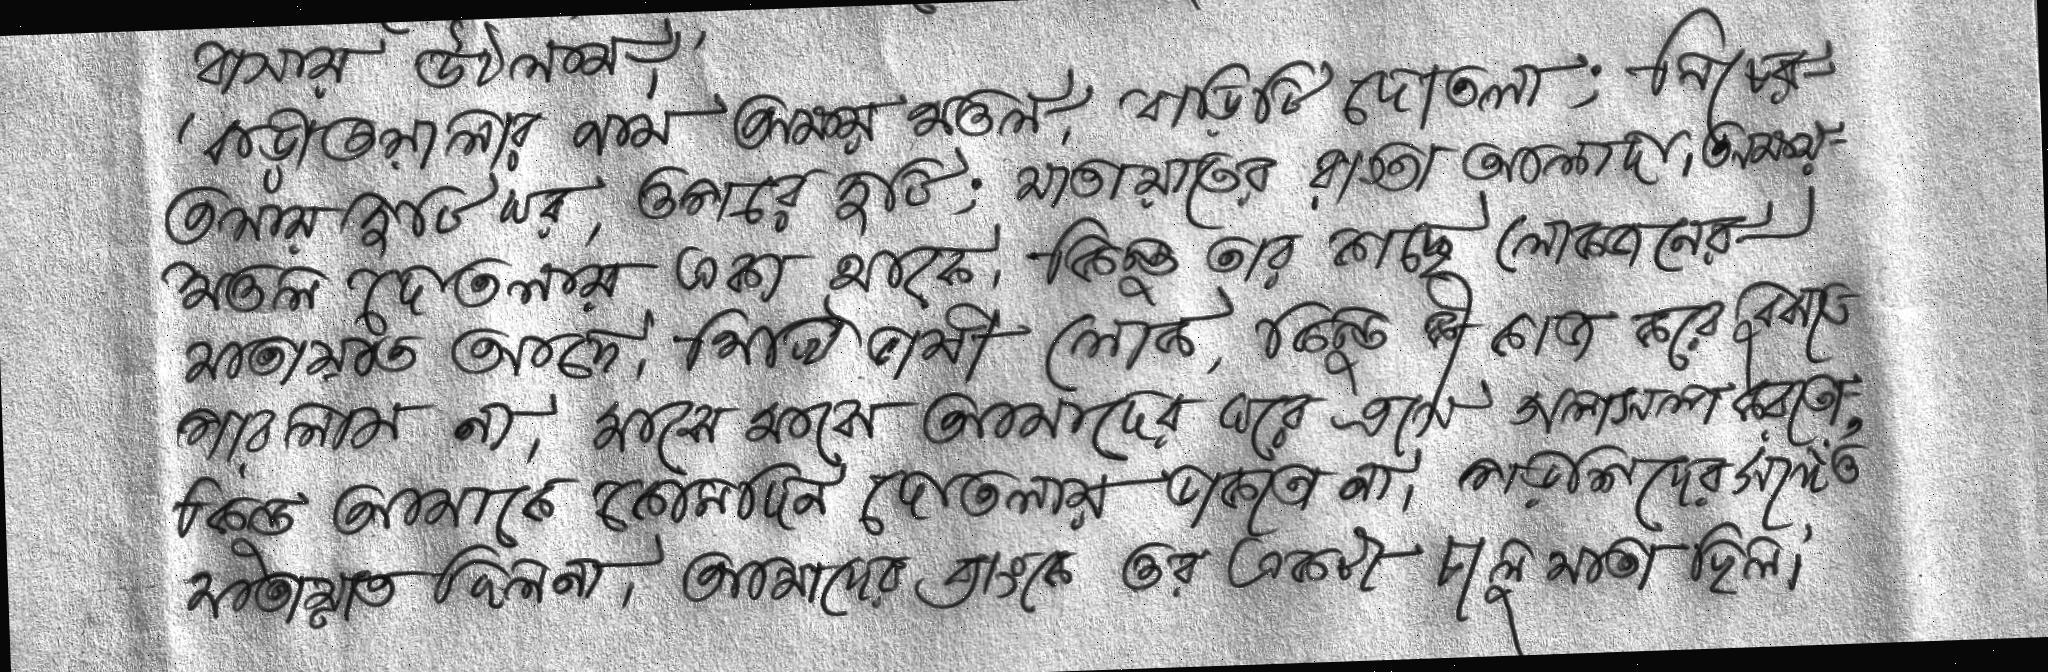 বাসায় উঠলাম।
'বাড়ীওয়ালার নাম তন্ময় মণ্ডল, বাড়িটি দোতলা; নিচের
তলায় দুটি ঘর, ওপরে দুটি; যাতায়াতের রাস্তা আলাদা, তন্ময়
মণ্ডল দোতলায় একা থাকে, কিন্তু তার কাছে লোকজনের
যাতায়াত আছে, লোক, কিন্তু কী কাজ করে বুঝতে
পারলাম না, মাঝে মাঝে আমাদের ঘরে এসে গল্পসল্প করতো,
কিন্তু আমাকে কোনদিন দোতলায় ডাকতো না, পড়শিদের সঙ্গেও
যাতায়াত ছিলনা, আমাদের ব্যাংকে ওর একটা চালু খাতা ছিল।